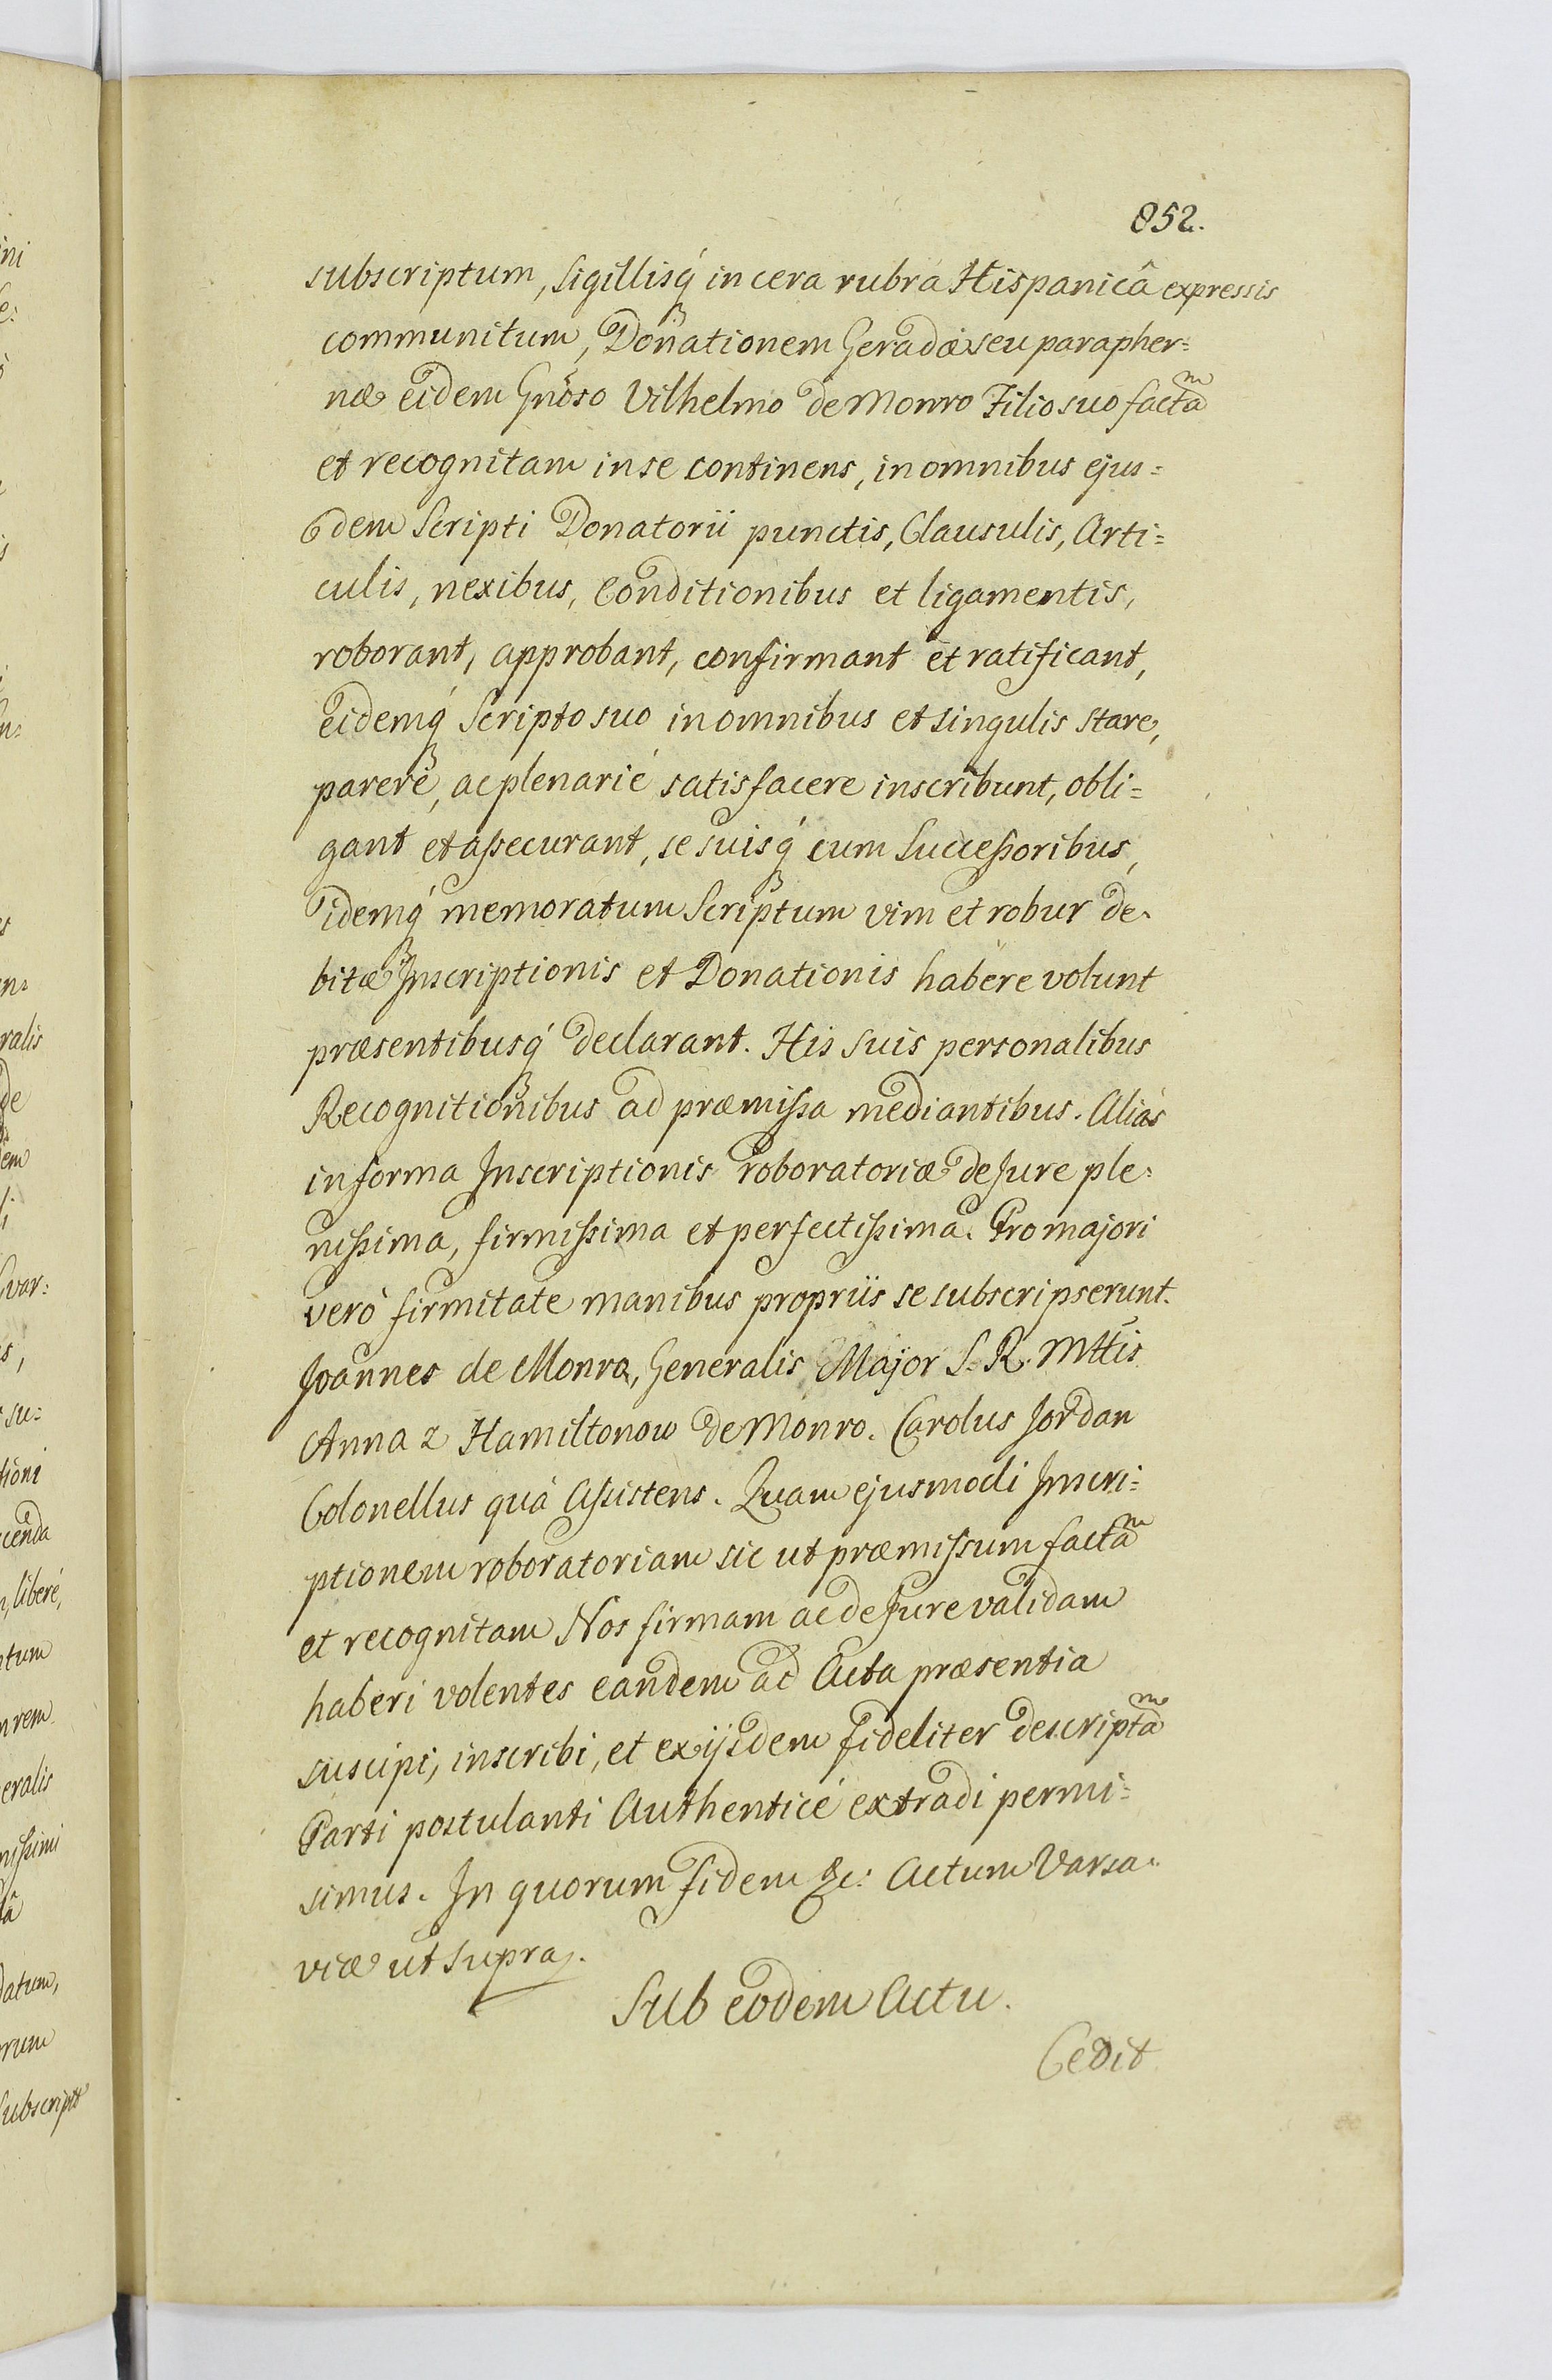 852.
subscriptum, sigillisq́ in cera rubra Hispanicâ expressis
communitum, Donationem Geradæ seu parapher=
næ eidem Gnõso Vilhelmo de Monro Filio suo factaᵐ
et recognitam in se continens, in omnibus ejus=
dem Scripti Donatorii punctis, Clausulis, Arti=
culis, nexibus, Conditionibus et ligamentis,
roborant, approbant, confirmant et ratificant,
eidemq́ Scripto suo in omnibus et singulis stare,
parere, ac plenarié satisfacere inscribunt, obli=
gant et aſsecurant, se suisq́ cum Succeſsoribus,
idemq́ memoratum Scriptum vim et robur de=
bitæ Inscriptionis et Donationis habere volunt
præsentibusq́ declarant. His suis personalibus
Recognitionibus ad præmiſsa mediantibus. Aliàs
in forma Inscriptionis roboratoriæ de Jure ple=
niſsima, firmiſsima et perfectiſsima. Pro majori
verò firmitate manibus propriis se subscripserunt.
Joannes de Monro, Generalis Major S. R. Mttis
Anna z Hamiltonow de Monro. Carolus Jordan
Colonellus quà Aſsistens. Quam ejusmodi Inscri=
ptionem roboratoriam sic ut præmiſsum factaᵐ
et recognitam Nos firmam ac de Jure validam
haberi volentes eandem ad Acta præsentia
suscipi, inscribi, et ex ijsdem fideliter descriptaᵐ
Parti postulanti Authenticé extradi permi=
simus. In quorum fidem &c: Actum Varsa=
viæ ut supra.
Sub eodem Actu.
Cedit